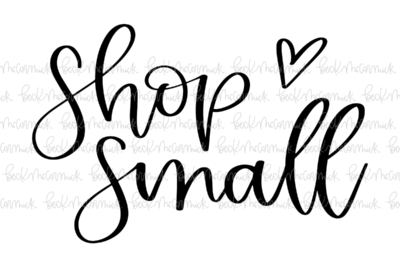 shop
small